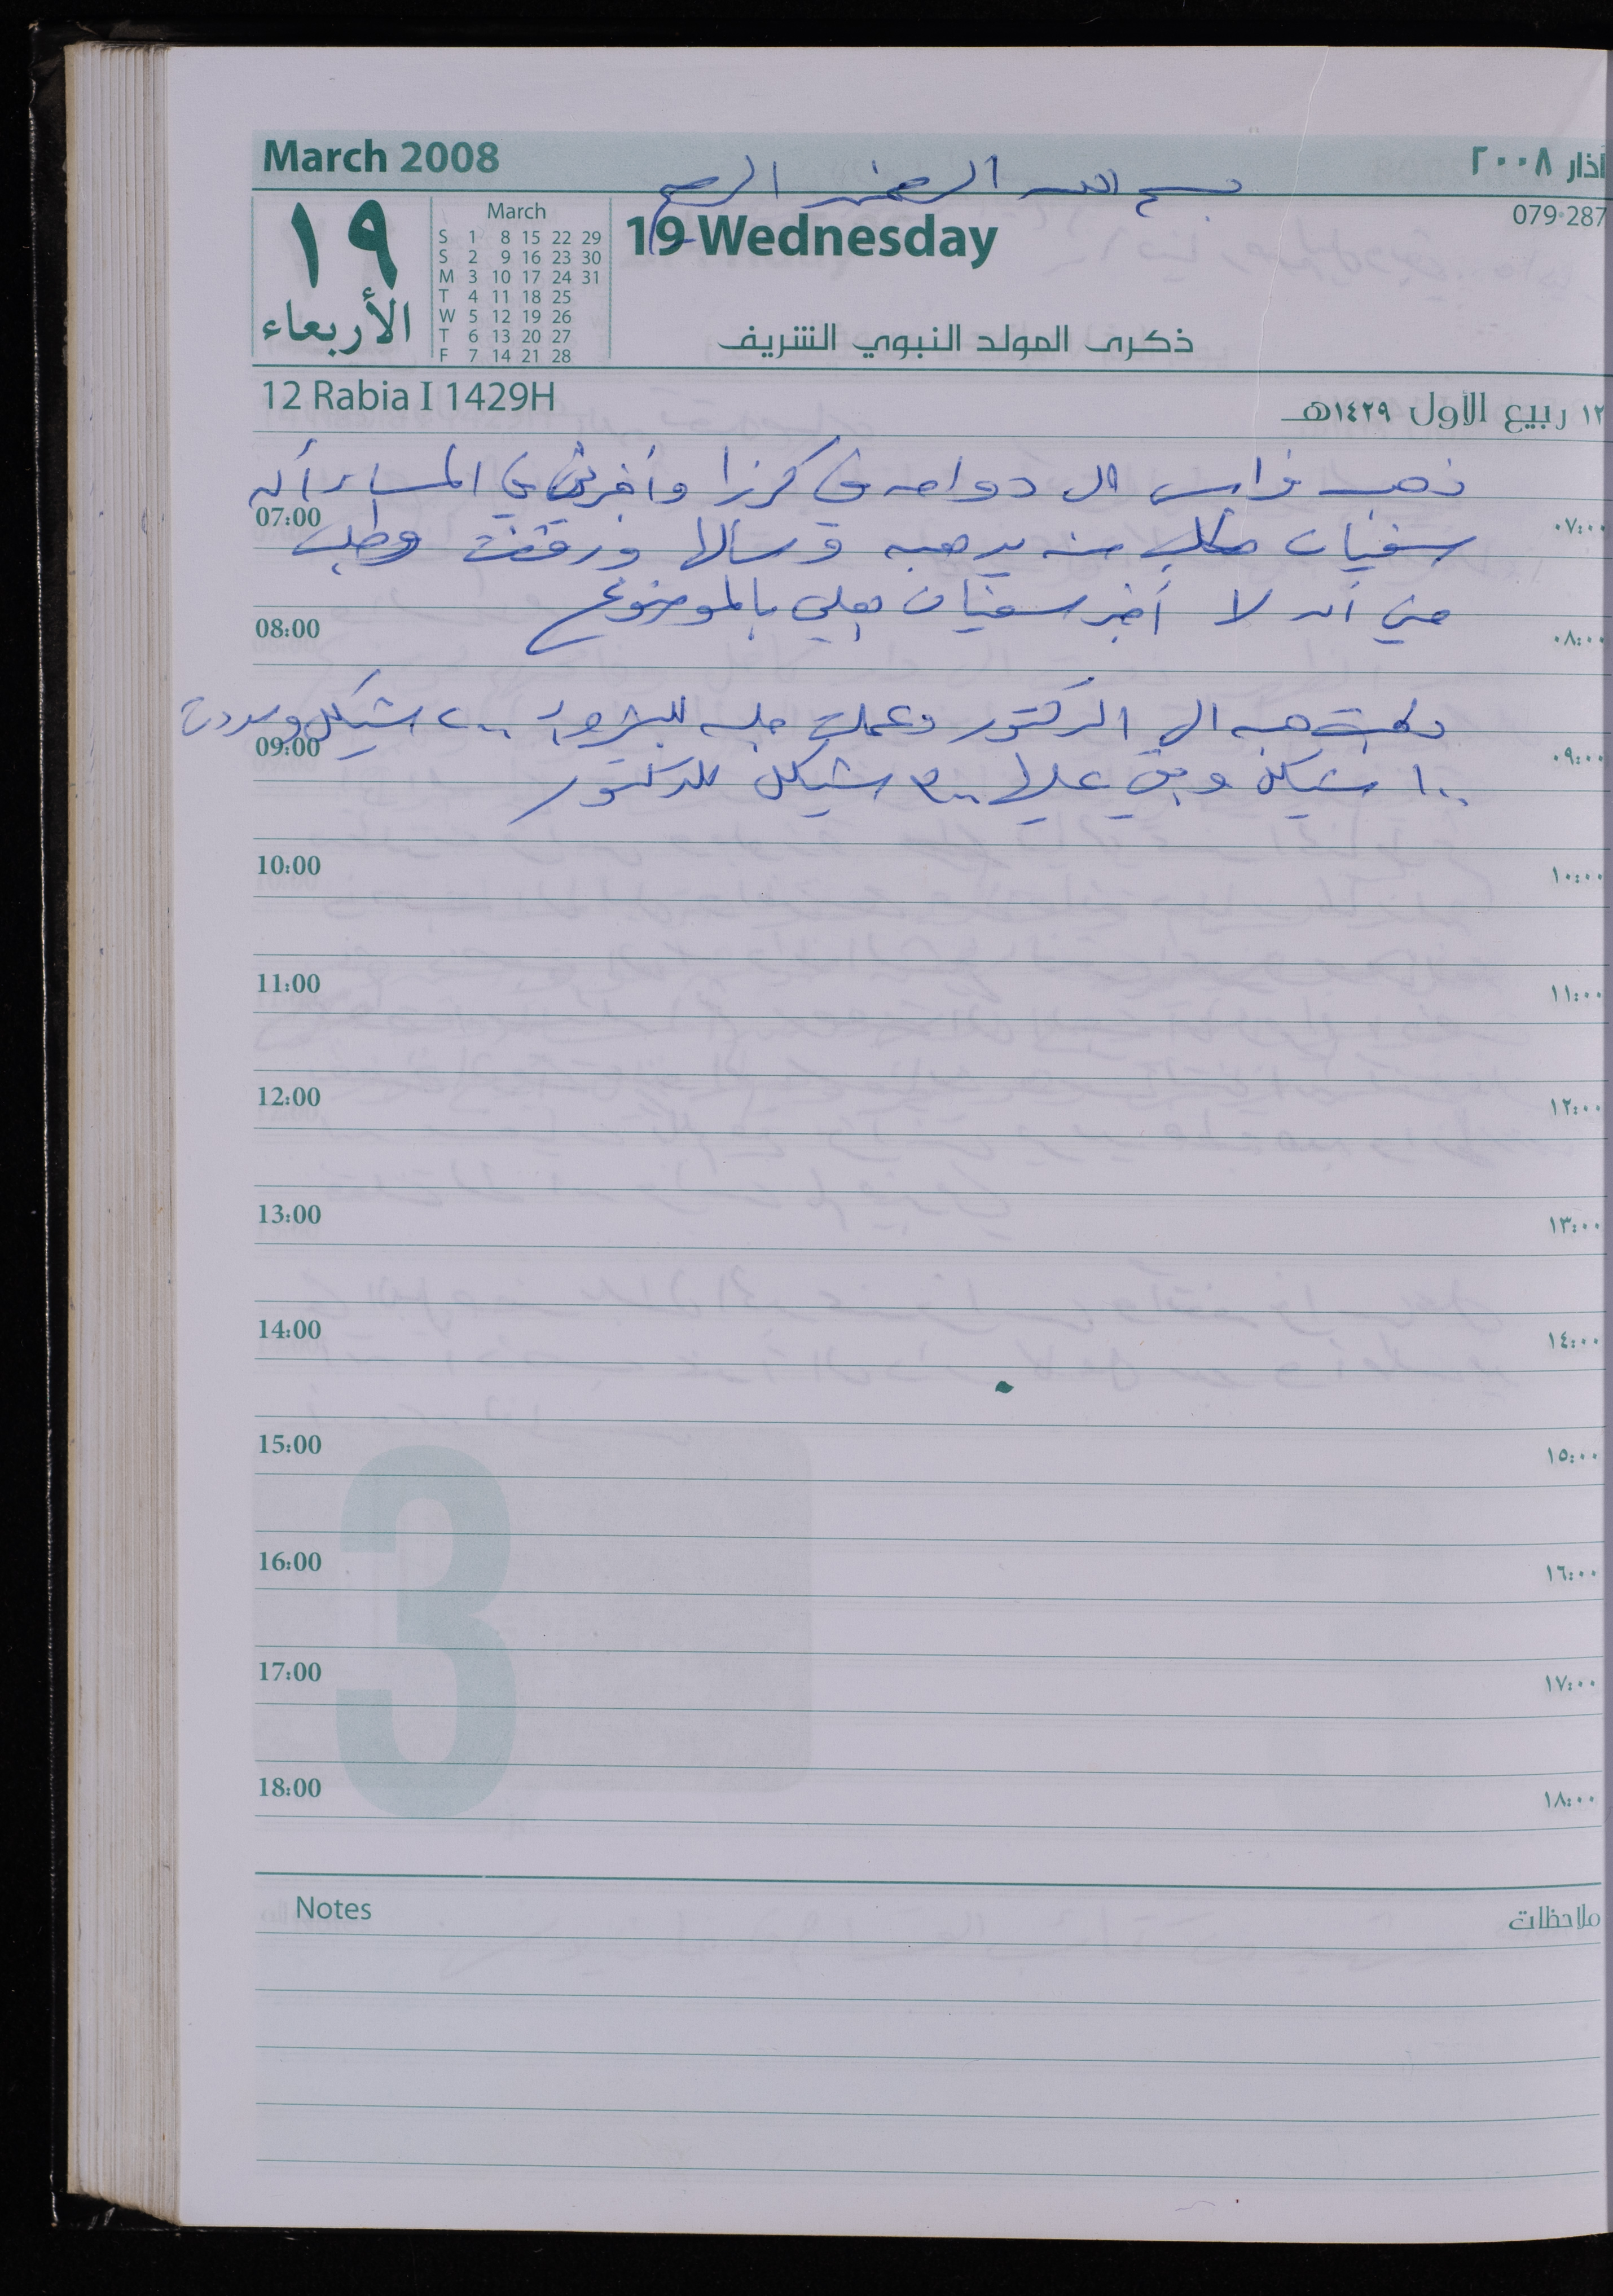 March 2008
اذار ٢٠٠٨
بسم الله الرحمن الرحيم
١٩
الأربعاء
March
S 1 8 15 22 29
S 2 9 16 23 30
M 3 10 17 24 31
T 4 11 18 25
W 5 12 19 26
T 6 13 20 27
F 7 14 21 28
19 Wednesday
079-287
ذكرى المولد النبوي الشريف
12 Rabia I 1429H
١٢ ربيع الأول ١٤٢٩هـ
ذهب فراس الى دوامه في كرزا وأخبرني في المساء أن
07:00 ٠٧:٠٠
سفيان طلب منه هبه و سألها ورفضت وطلب
مني أن لا أخبر سفيان بعلمي بالموضوع
08:00 ٠٨:٠٠
هبه الى الدكتور وعملت ٢٠٠ شيكل وسددت
09:00 ٠٩:٠٠
١٠٠ شيكل وبقي عليها ٣٠٠ شيكل للدكتور
10:00 ١٠:٠٠
11:00 ١١:٠٠
12:00 ١٢:٠٠
13:00 ١٣:٠٠
14:00 ١٤:٠٠
15:00 ١٥:٠٠
16:00 ١٦:٠٠
17:00 ١٧:٠٠
18:00 ١٨:٠٠
3
Notes
ملاحظات